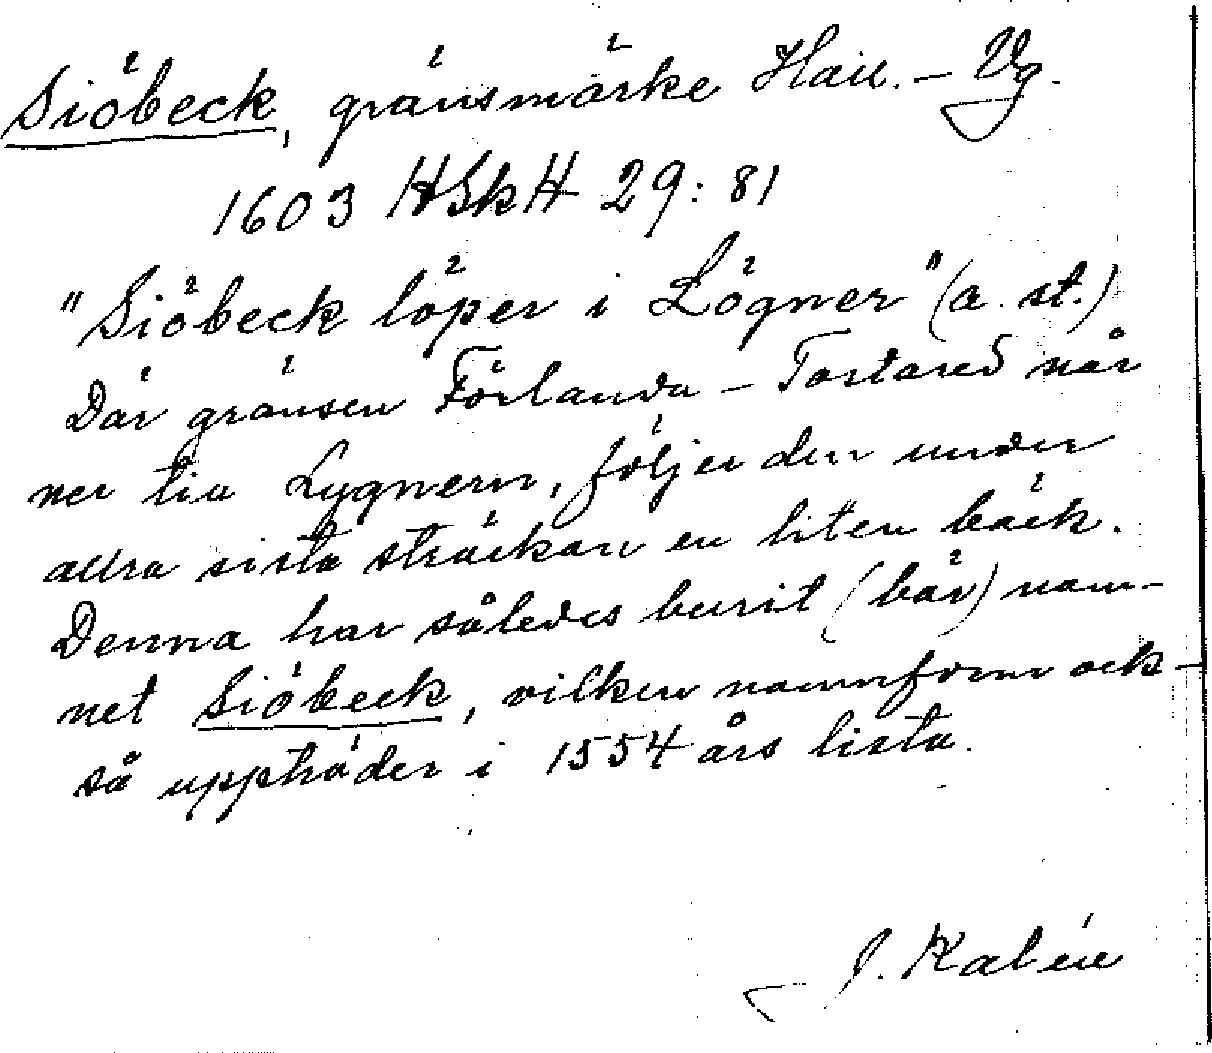 Siöbeck, gränsmärke Hall. – Vg.
1603 HSkH 29: 81
"Siöbeck löper i Lögner" (a. st.)
Där gränsen Förlanda – Tostared når
ner till Lygnern, följer den under
allra sista sträckan en liten bäck.
Denna har således burit (bär) nam-
net Siöbeck, vilken namnform ock-
så uppträder i 1554 års lista.
J. Kalén